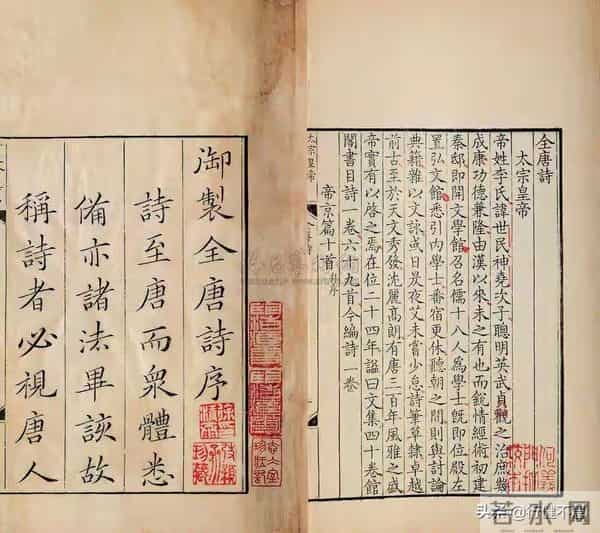 全唐詩
太宗皇帝
帝姓李氏諱世民神堯次子聰明英武貞觀之治庶幾
成康功德兼隆由漢以來未之有也而銳情經術初建
秦邸即開文學館召名儒十八人爲學士既即位殿左
置弘文館悉引內學士番宿更休聽朝之間則與討論
典籍雜以文詠或日昃夜艾未嘗少怠詩筆草隸卓越
前古至於天文秀發沈麗高朗有唐三百年風雅之盛
帝實有以啓之焉在位二十四年諡曰文集四十卷館
閣書目詩一卷六十九首今編詩一卷
帝京篇十首并序
太宗皇帝
御製全唐詩序
詩至唐而衆體悉
備亦諸法畢該故
稱詩者必視唐人
头条 @行健不息
若水网